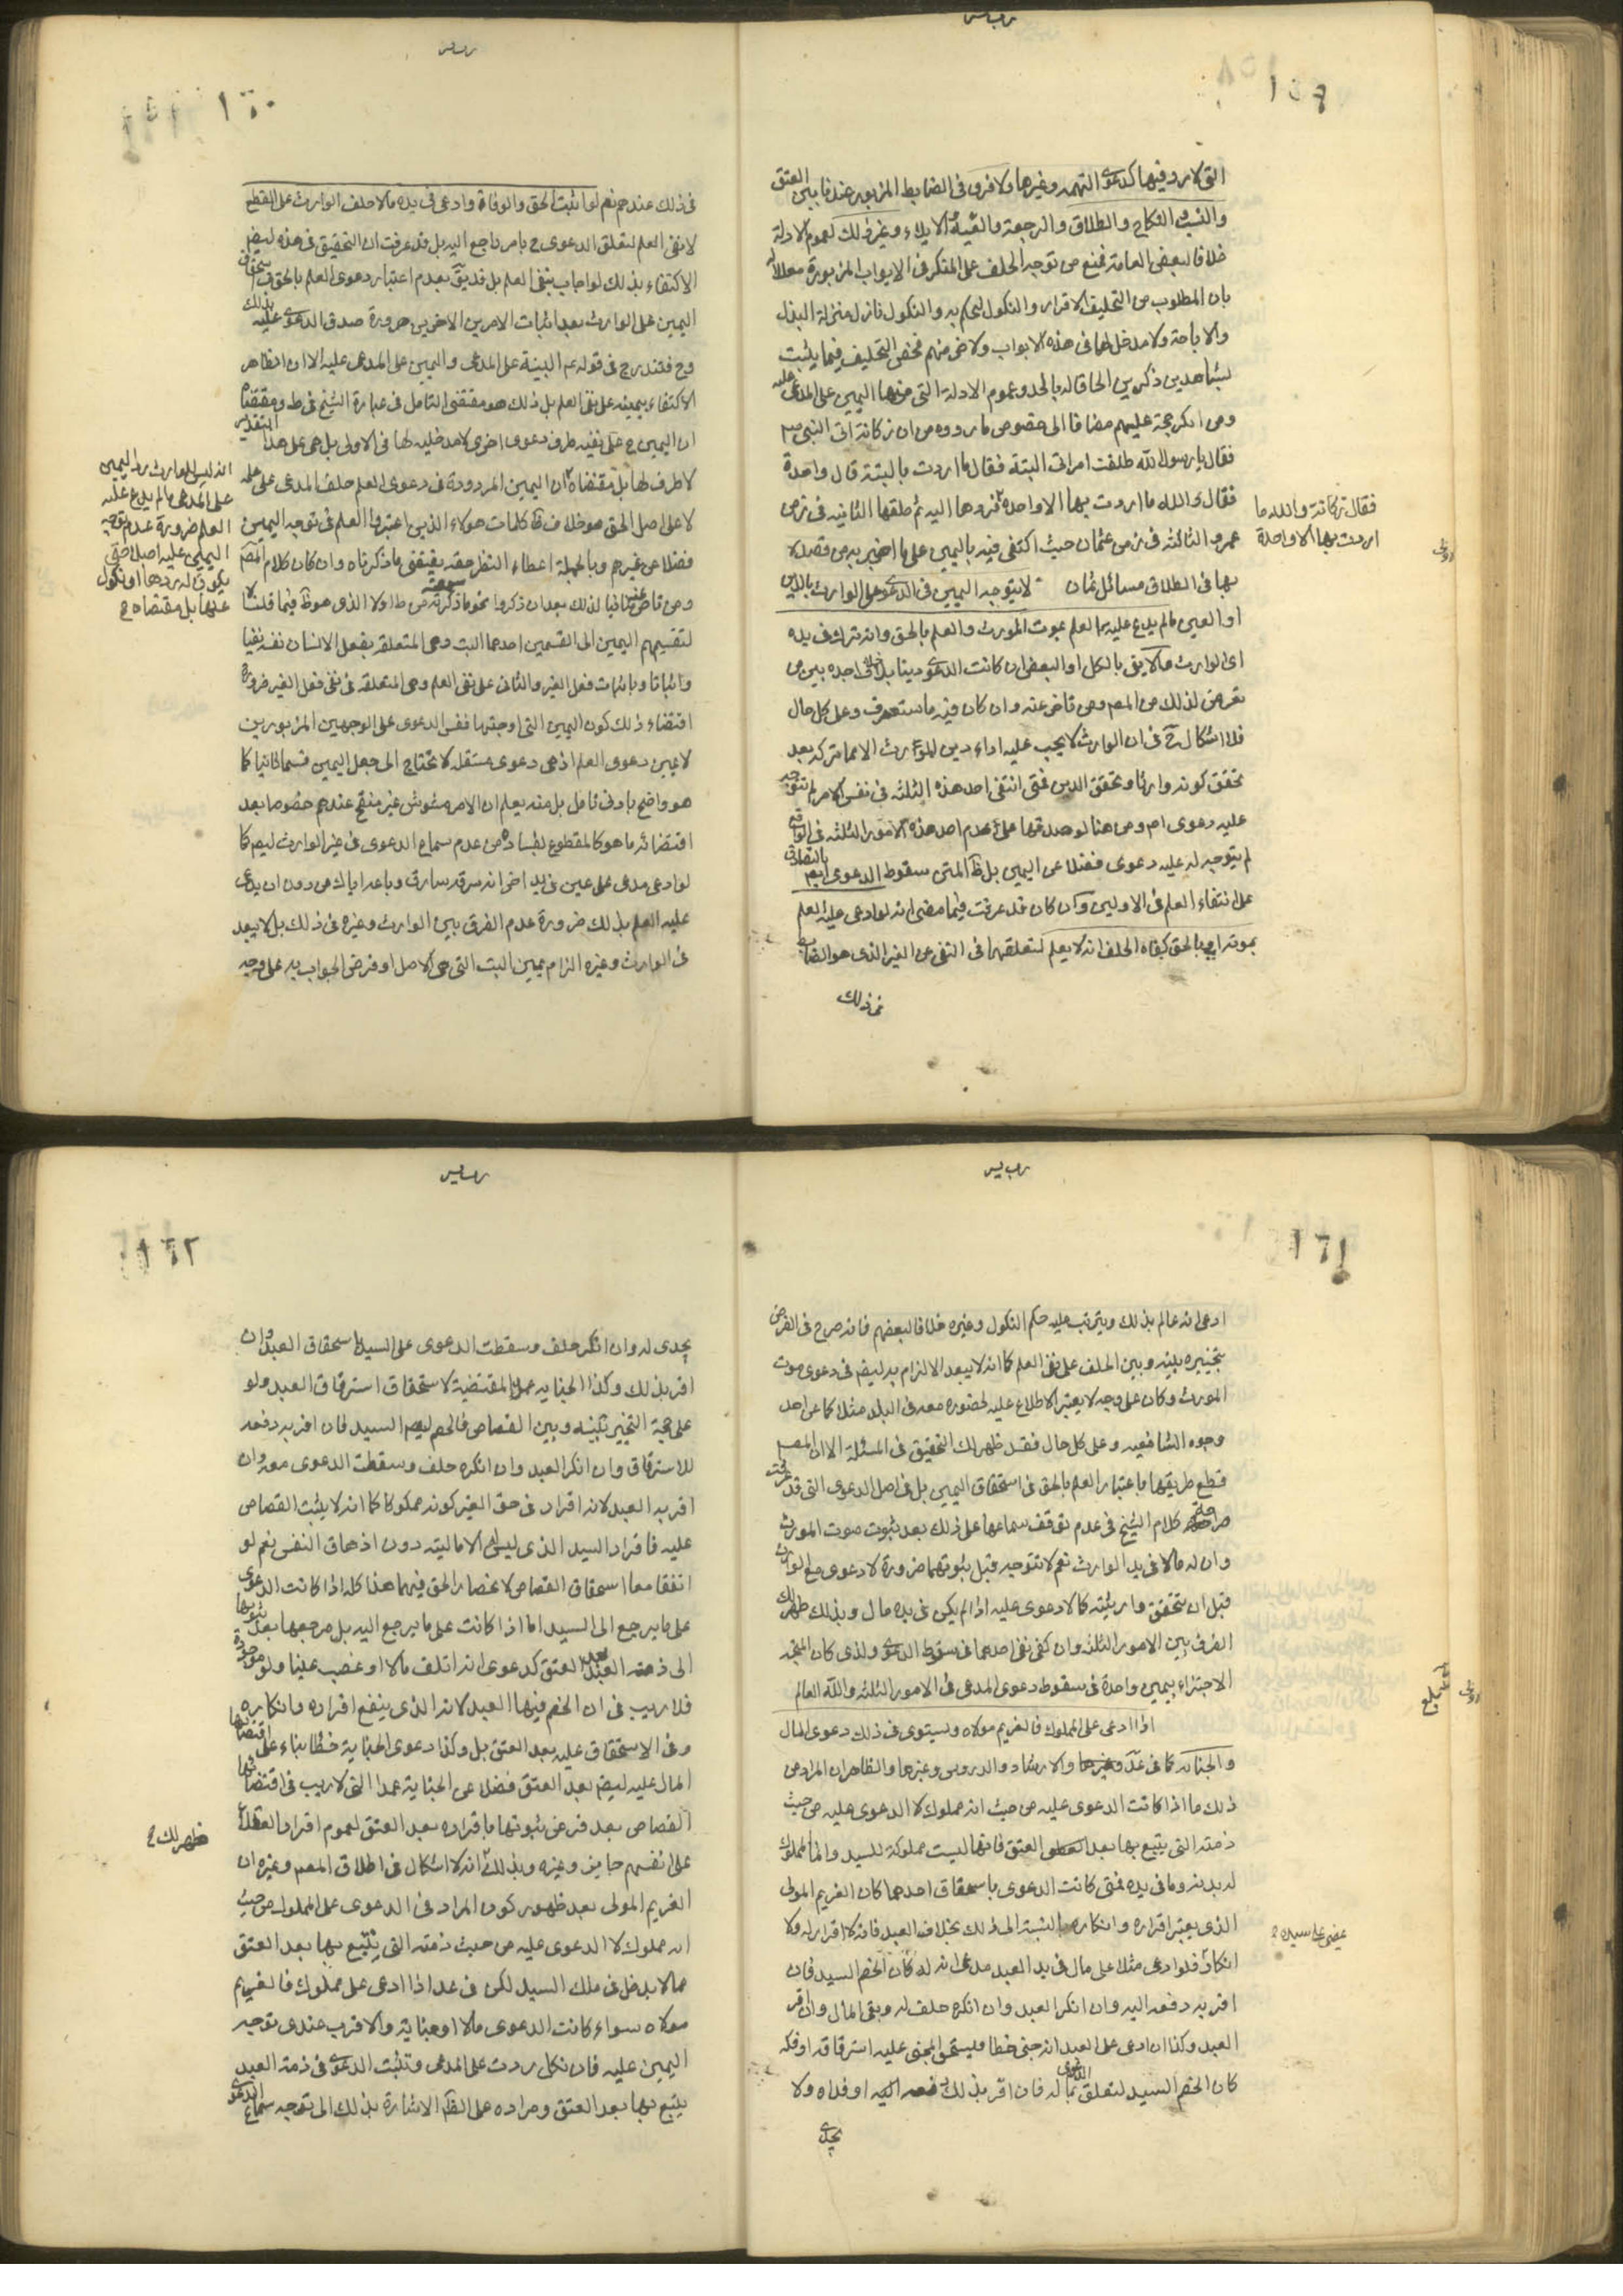 ١٥٩
التي لا رد فيها كدعوى التهمة وغيرها ولا فرق في الضابط المزبور عندنا بين العتق
والنسب والنكاح والطلاق والرجعة والفيئة في الايلاء وغير ذلك لعموم الادلة
خلافا لبعض العامة فمنع من توجه الحلف على المنكر في الابواب المزبورة معللا له
بان المطلوب من التحليف الاقرار والنكول ليحكم به والنكول نازل منزلة البذل
والاباحة ولا مدخل لهما في هذه الابواب ولاخر منهم فخص التحليف فيما يثبت
بشاهدين ذكرين الحاقا له بالحد وعموم الادلة التي منها اليمين على المدعى عليه
ومن انكر حجة عليهم مضافا الى خصوص ما رووه من ان ركانة اتى النبي ص
فقال يا رسول الله طلقت امراتي البتة فقال ما اردت بالبتة قال واحدة
فقال والله ما اردت بها الا واحدة فردها اليه ثم طلقها الثانية في زمن
فقال ركانة والله ما
اردت بها الا واحدة
عمر والثالثة في زمن عثمان حيث اكتفى فيه باليمين على ما اخبر به من قصده لا
بها في الطلاق مسائل ثمان لا يتوجه اليمين في الدعوى على الوارث بالدين
او العين ما لم يدع عليه العلم بموت المورث والعلم بالحق وانه ترك في يده
اى الوارث مالا يفي بالكل او البعض ان كانت الدعوى دينا بلا خلاف اجده بين من
تعرض لذلك من المصـ ومن تاخر عنه وان كان فيه ما ستعرف وعلى كل حال
فلا اشكال ح في ان الوارث لا يجب عليه اداء دين المورث الا مما تركه بعد
تحقق كونه وارثا وتحقق الدين فمتى انتفى احد هذه الثلثة في نفس الامر لم تتوجه
عليه دعوى ام ومن هنا لو صدقها على عدم احد هذه الامور الثلثة في الواقع
لم يتوجه له عليه دعوى فضلا عن اليمين بل ظ المتن سقوط الدعوى ايض بالتصادق
على انتفاء العلم في الاولين وان كان قد عرفت فيما مضى انه لو ادعى عليه العلم
بموته او بالحق كفاه الحلف انه لا يعلم لتعلقها في النفي عن الغير الذى هو الضابط
في ذلك
١٦٠
في ذلك عندهم نعم لو اثبت الحق والوفاة وادعى في يده مالا حلف الوارث على القطع
لا نفي العلم لتعلق الدعوى ح بامر راجع اليه بل قد عرفت ان التحقيق في هذه ليضم
الاكتفاء بذلك لو اجاب بنفي العلم بل قد يق بعدم اعتبار دعوى العلم بالحق في استحقاق
اليمين على الوارث بعد اثبات الامرين الاخرين ضرورة صدق الدعوى عليه بذلك
وح فتندرج في قوله ع البينة على المدعى واليمين على المدعى عليه الا ان الظاهر
الاكتفاء بيمينه على نفي العلم بل ذلك هو مقتضى التامل في عبارة الشيخ في ط ومقتضاها
ان اليمين ح على نفيه طرف دعوى اخرى لا مدخلية لها في الاولى بل هى على هذا التقدير
لا طرف لها بل مقتضاه ان اليمين المردودة في دعوى العلم حلف المدعى على علمه
انه ليس للوارث رد اليمين
على المدعى ما لم يدع عليه
العلم ضرورة عدم توجه
اليمين عليه اصلا حتى
يكون له ردها او نكول
عنها بل مقتضاه ح
لا على اصل الحق هو خلاف ظ كلمات هولاء الذين اعتبروا العلم في توجه اليمين
فضلا عن غيرهم وبالجملة اعطاء النظر حقه يقتضى ما ذكرناه وان كان كلام المصـ
ومن تاخر عنه منافيا لذلك بعد ان ذكروا نحو ما ذكرته سمعته من ط اولا الذى هو ظ فيما قلنا لا
لتقسيمهم اليمين الى القسمين احدهما البت وهى المتعلقة بفعل الانسان نفسه نفيا
واثباتا وباثبات فعل الغير والثانى على نفي العلم وهى المتعلقة في نفي فعل الغير ضرورة
اقتضاء ذلك كون اليمين التي اوجبتها نفس الدعوى على الوجهين المزبورين
لا يمين دعوى العلم اذ هى دعوى مستقلة لا تحتاج الى جعل اليمين قسما ثانيا كما
هو واضح بادنى تامل بل منه يعلم ان الامر مشوش غير منقح عندهم خصوصا بعد
اقتضائه ما هو كالمقطوع بفساده من عدم سماع الدعوى في غير الوارث ليضم كما
لو ادعى مدعى على عين في يد اخر انه سرقه سارق وباعه اياك من دون ان يدعى
عليه العلم بذلك ضرورة عدم الفرق بين الوارث وغيره في ذلك بل لا يبعد
في الوارث وغيره الزام يمين البت التي هى الاصل او فرض الجواب به على وجه
١٦١
ادعى انه عالم بذلك ويترتب عليه حكم النكول وغيره خلافا لبعضهم فانه صرح في الفرض
بتخييره بينه وبين الحلف على نفي العلم كما انه لا يبعد الالزام به ليضم في دعوى موت
المورث وكان على وجه لا يعتبر الاطلاع عليه لحضوره معه في البلد مثلا كما عن احد
وجوه الشافعيه وعلى كل حال فقد ظهر لك التحقيق في المسئلة الا ان المصـ
قطع طريقها باعتبار العلم بالحق في استحقاق اليمين بل في اصل الدعوى التي قد عرفت
صراحة كلام الشيخ في عدم توقف سماعها على ذلك بعد ثبوت موت المورث
وان له مالا في يد الوارث نعم لا تتوجه قبل ثبوتهما ضرورة لا دعوى مع الوارث
قبل ان يتحقق وارثيته كما لا دعوى عليه اذا لم يكن في يده مال وبذلك ظهر لك
الفرق بين الامور الثلثة وان كفى نفي احدهما في سقوط الدعوى ولذى كان المتجه
الاجتزاء بيمين واحدة في سقوط دعوى المدعى في الامور الثلثة والله العالم
اذا ادعى على المملوك فالغريم مولاه ويستوى في ذلك دعوى المال
والجناية كما في عد وغيرها والارشاد والدروس وغيرها والظاهر ان المراد من
ذلك ما اذا كانت الدعوى عليه من حيث انه مملوك لا الدعوى عليه من حيث
ذمته التي يتبع بها بعد العتق فانها ليست مملوكة للسيد وانما المملوك
له بدنه وما في يده فمتى كانت الدعوى باستحقاق احدهما كان الغريم المولى
الذى يعتبر اقراره وانكاره بالنسبة الى ذلك بخلاف العبد فانه لا اقرار له ولا
انكار فلو ادعى مثلا على مال في يد العبد مدع انه له كان الخصم السيد فان
اقر به دفعه اليه وان انكر العبد وان انكره حلف له وبقى المال وان اقر
العبد وكذا ان ادعى على العبد انه جنى خطا فيستحق المجنى عليه استرقاقه او فكه
كان الخصم السيد لتعلق الدعوى بما له فان اقر بذلك دفعه اليه او فداه ولا
يجدى
١٦٢
يجدى له وان انكر حلف وسقطت الدعوى على السيد باستحقاق العبد وان
اقر بذلك وكذا الجناية عمدا المقتضية لاستحقاق استرقاق العبد ولو
على جهة التخيير بينه وبين القصاص فالخصم ليضم السيد فان اقر به دفعه
للاسترقاق وان انكر العبد وان انكره حلف وسقطت الدعوى معه وان
اقر به العبد لانه اقرار في حق الغير كونه مملوكا كما انه لا يثبت القصاص
عليه فاقرار السيد الذى ليس له الا ماليته دون اذهاق النفس نعم لو
اتفقا معا استحقاق القصاص لانحصار الحق فيهما هذا كله اذا كانت الدعوى
على ما يرجع الى السيد اما اذا كانت على ما يرجع اليه بل مرجعها بعد ثبوتها
الى ذمته بعد العتق كدعوى انه اتلف مالا او غصب عينا ولو موجودة
فلا ريب في ان الخصم فيها العبد لانه الذى ينفع اقراره وانكاره
وفي الاستحقاق عليه بعد العتق بل وكذا دعوى الجناية خطأ بناء على اقتضائها
المال عليه ليضم بعد العتق فضلا عن الجناية عمدا التي لا ريب في اقتضائها
القصاص بعد فرض ثبوتها باقراره بعد العتق لعموم اقرار العقلاء
على انفسهم جايز وغيره وبذلك ظهر لك ح انه لا اشكال في اطلاق المصـ وغيره ان
الغريم المولى بعد ظهور كون المراد في الدعوى على المملوك من حيث
انه مملوك لا الدعوى عليه من حيث ذمته التي يتبع بها بعد العتق
مما لا يدخل في ملك السيد لكن في عد اذا ادعى على مملوك فالغريم
مولاه سواء كانت الدعوى مالا او جناية والاقرب عندى توجه
اليمين عليه فان نكل ردت على المدعى وتثبت الدعوى في ذمة العبد
يتبع بها بعد العتق ومراده على الظ الاشارة بذلك الى توجه سماع الدعوى